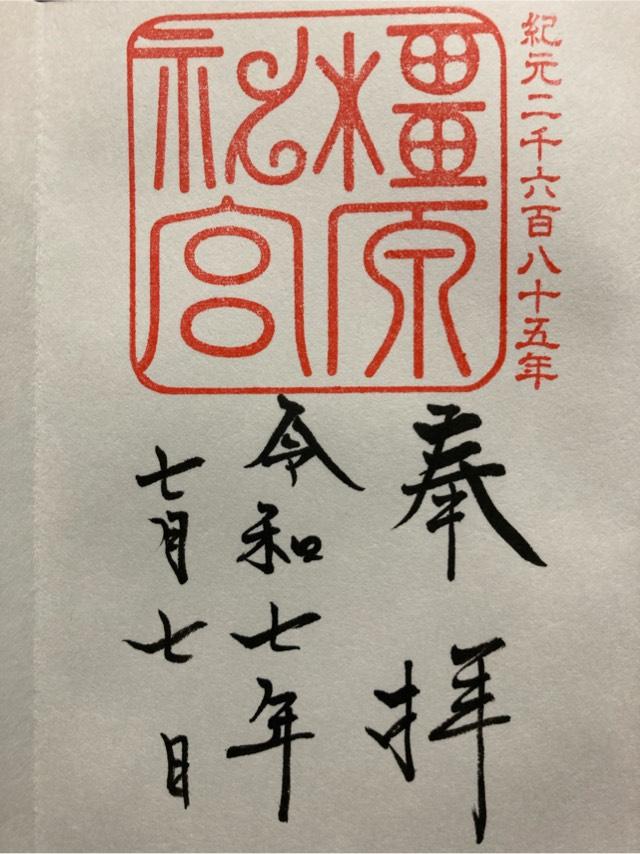 紀元二千六百八十五年
橿原
神宮
奉拝
令和七年
七月七日